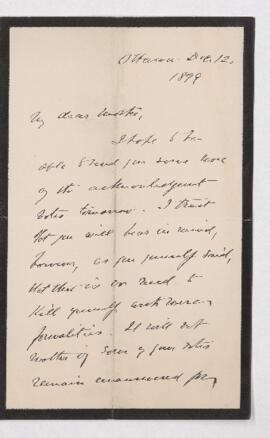 Ottawa Dec. 12,
1899
My dear
I hope to be
able to send you some more
of the acknowledgment
notes tomorrow. I trust
that you will bear in mind,
however, as you yourself said,
that there is no need to
kill yourself over
formalities. It will not
matter if some of your notes
remain unanswered for